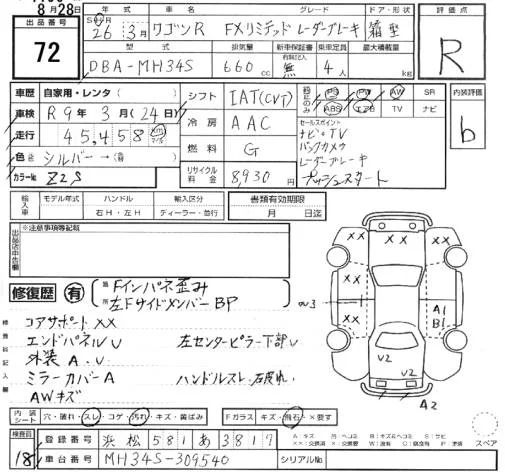 8月28日
出品番号
72
年式
車名
グレード
ドア・形状
評価点
26 3月
ワゴンR
FXリミテッド レーダーブレーキ
箱型
R
型式
排気量
新車保証書
乗車定員
最大積載量
DBA-MH34S
660cc
有(記)入
無
4人
kg
車歴 自家用・レンタ( )
車検 R9年3月(24日)
走行 45,458 km マイル
色 シルバー→
カラーNo Z2S
シフト IAT(CVT)
冷房 AAC
燃料 G
リサイクル料金 8,930円
純正のみ
PS PW AW SR
ABS エアB TV ナビ
内装評価
b
セールスポイント
ナビ・TV
バックカメラ
レーダーブレーキ
プッシュスタート
輸入車
モデル年式
ハンドル
輸入区分
右H・左H
ディーラー・並行
書類有効期限
月 日迄
出品店申告欄
※注意事項等記載
修復歴 有
箇所
Fインパネ歪み
左FサイドメンバーBP
検査員記入欄
コアサポートXX
エンドパネルU
左センターピラー下部U
外装A.U
ミラーカバーA
ハンドルスレ.
AWキズ
XX
XX
XX
A1
B1
U2
U2
A2
内装シート
穴・破れ・スレ・コゲ・汚れ・キズ・黄ばみ
Fガラス キズ・飛石・×要す
スペア
検査員
18
登録番号 浜松 581 あ 3817
車台番号 MH34S-309540
シリアルNo.